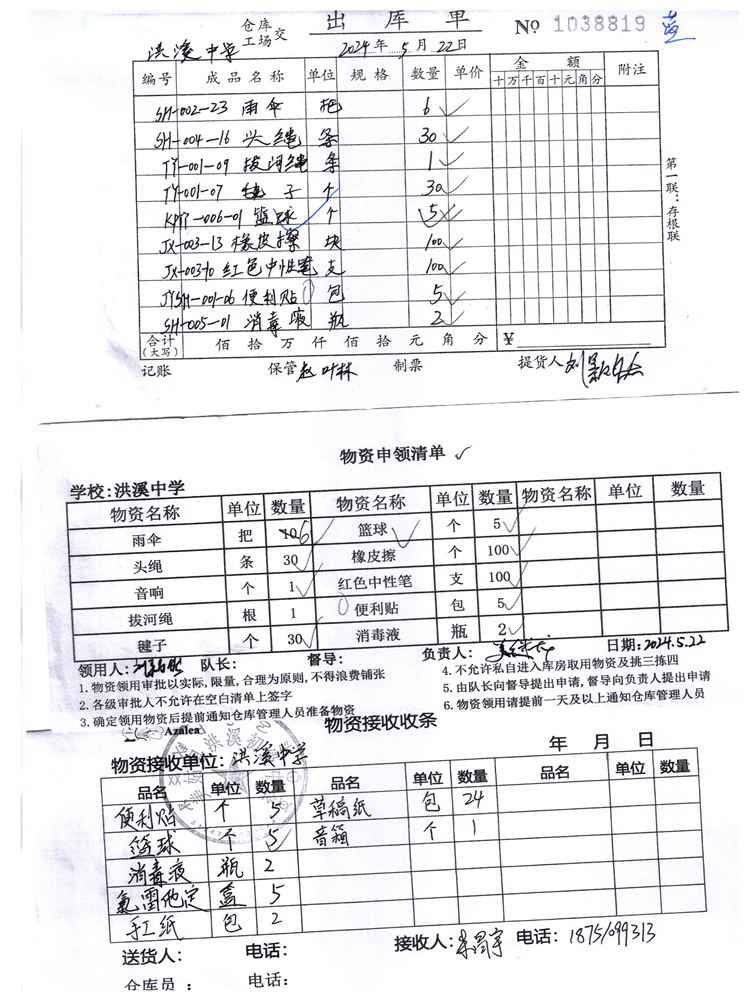 仓库
工场 交 出库单 № 1038819 蓝
洪溪中学 2024年5月22日
编号 成品名称 单位 规格 数量 单价 金额 附注
十 万 千 百 十 元 角 分
SH-002-23 雨伞 把 6
SH-004-16 头绳 条 30
TY-001-09 拔河绳 条 1
TY-001-07 毽子 个 30
-006-01 篮球 个 5
JX-003-13 橡皮擦 块 100
JX-003-10 红色中性笔 支 100
JYSH-001-06 便利贴 包 5
SH-005-01 消毒液 瓶 2
合计
(大写) 佰 拾 万 仟 佰 拾 元 角 分 ¥
记账 保管 赵叶林 制票 提货人 刘
第一联:存根联
物资申领清单
学校:洪溪中学
物资名称 单位 数量 物资名称 单位 数量 物资名称 单位 数量
雨伞 把 10 6 篮球 个 5
头绳 条 30 橡皮擦 个 100
音响 个 1 红色中性笔 支 100
拔河绳 根 1 便利贴 包 5
毽子 个 30 消毒液 瓶 2
领用人: 队长: 督导: 负责人: 日期:2024.5.22
1.物资领用审批以实际,限量,合理为原则,不得浪费铺张
2.各级审批人不允许在空白清单上签字
3.确定领用物资后提前通知仓库管理人员准备物资
4.不允许私自进入库房取用物资及挑三拣四
5.由队长向督导提出申请,督导向负责人提出申请
6.物资领用请提前一天及以上通知仓库管理人员
Azalea
物资接收收条
物资接收单位:洪溪中学 年 月 日
品名 单位 数量 品名 单位 数量 品名 单位 数量
便利贴 个 5 草稿纸 包 24
篮球 个 5 音箱 个 1
消毒液 瓶 2
氯雷他定 盒 5
手工纸 包 2
送货人: 电话: 接收人: 电话:18751099313
仓库员: 电话: